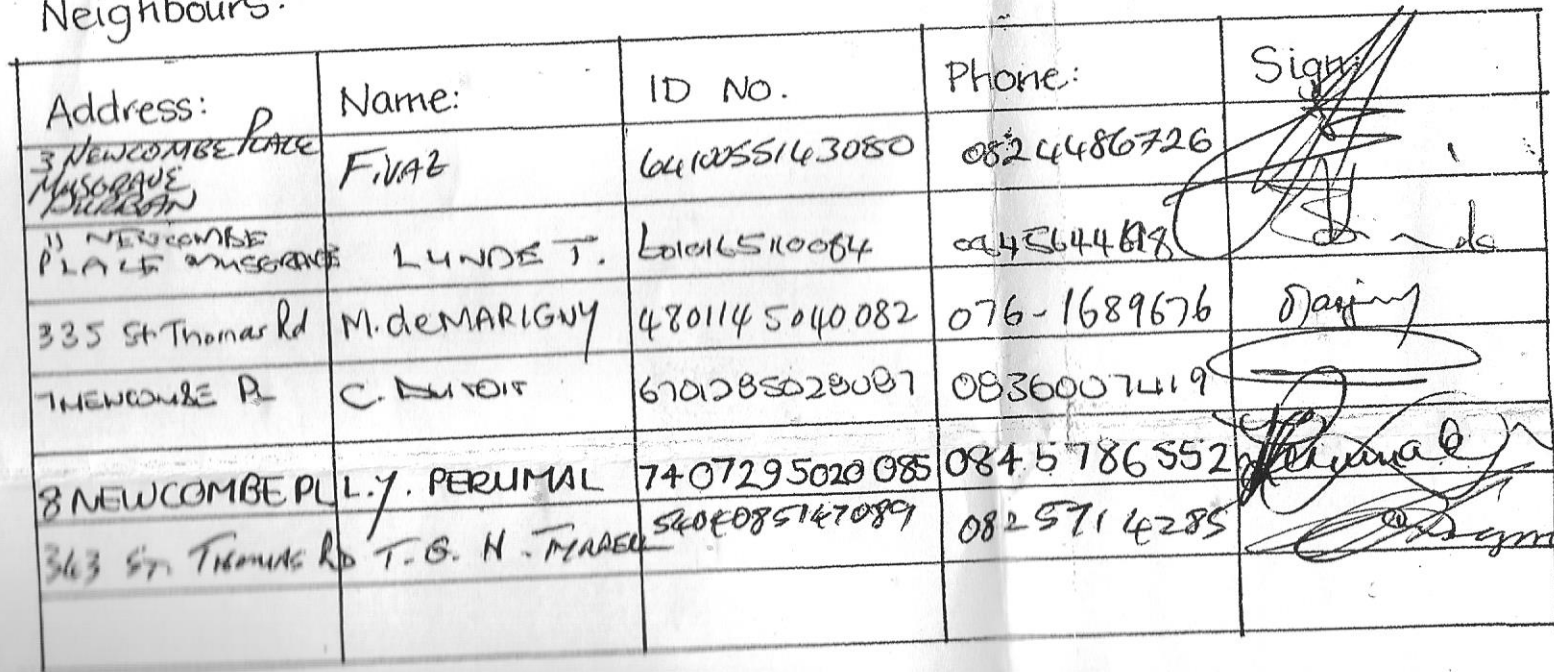 Neighbours:
Address: Name: ID No. Phone: Sign:
3 NEWCOMBE PLACE
MUSGRAVE
DURBAN
F. VAZ 6410055143080 0824486726
11 NEWCOMBE
PLACE MUSGRAVE
LUNDE T.
335 St Thomas Rd M. deMARIGNY 4801145040082 076-1689676
NEWCOMBE PL C. DUTOIT 6701285028087 0836007419
8 NEWCOMBE PL L.Y. PERUMAL 7407295020085 0845786552
363 ST. THOMAS RD T. G. H. 0825714285